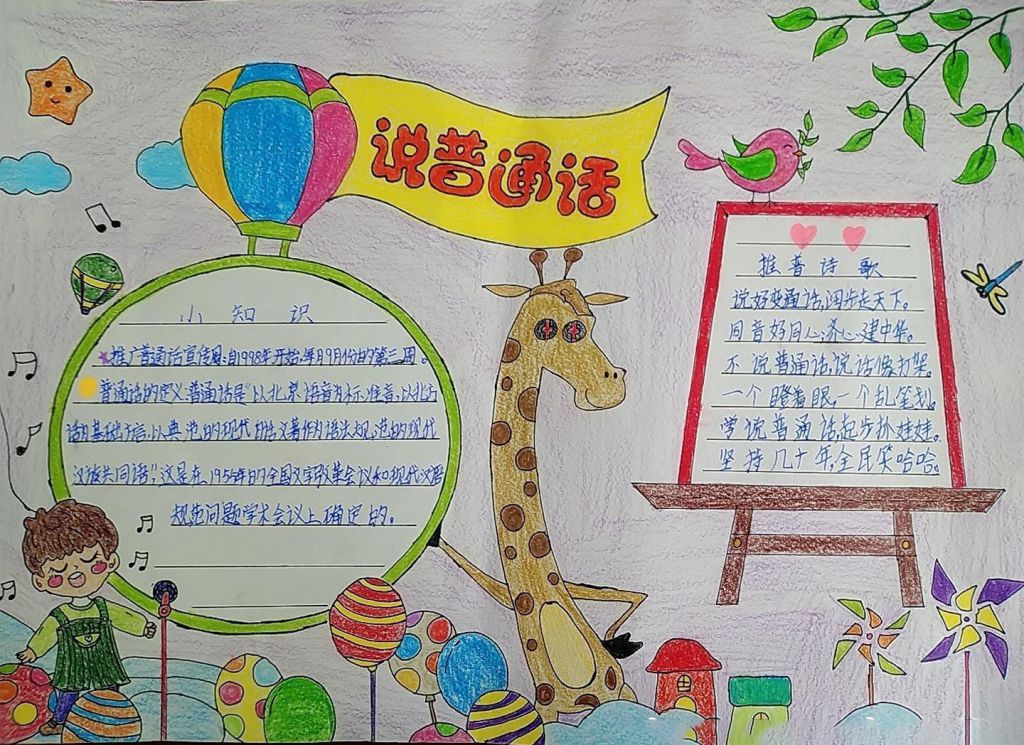 说普通话
小知识
推广普通话宣传周:自1998年开始,每月9月份的第三周。
普通话的定义:普通话是"以北京语音为标准音,以北方
话为基础方言,以典范的现代白话文著作为语法规范的现代
汉族共同语",这是在1955年的全国文字改革会议和现代汉语
规范问题学术会议上确定的。
推普诗歌
说好普通话,阔步走天下。
同音好同心,齐心建中华。
不说普通话,说话像打架。
一个瞪着眼,一个乱笔划。
学说普通话,起步抓娃娃。
坚持几十年,全民笑哈哈。